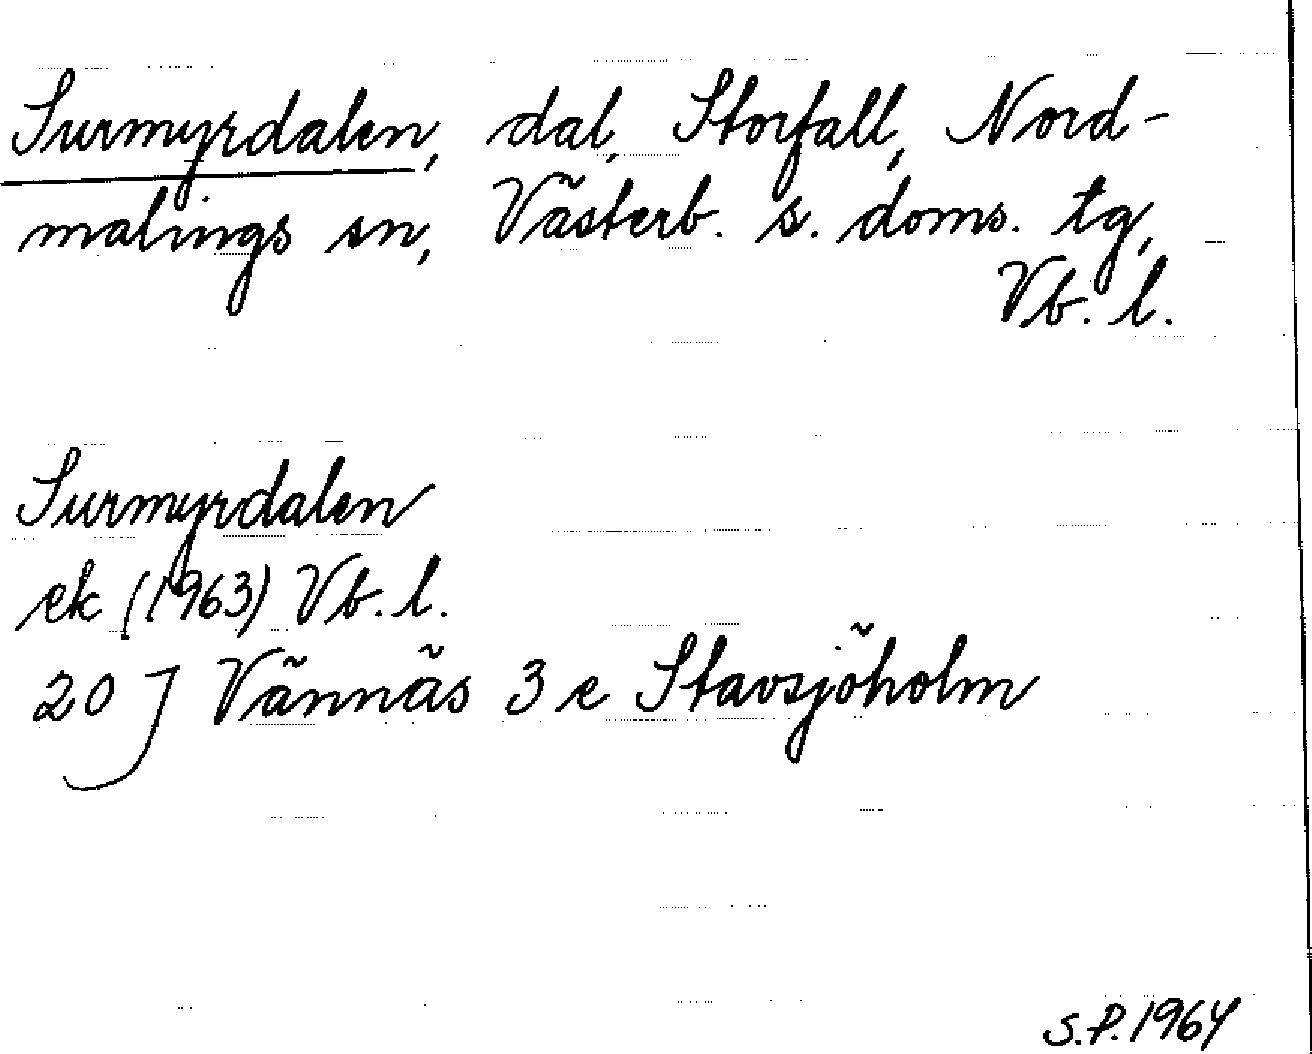 Surmyrdalen, dal, Storfall, Nord-
malings sn, Västerb. s. doms. tg,
Vb. l.
Surmyrdalen
ek (1963) Vb. l.
20 J Vännäs 3 e Stavsjöholm
S.P. 1964